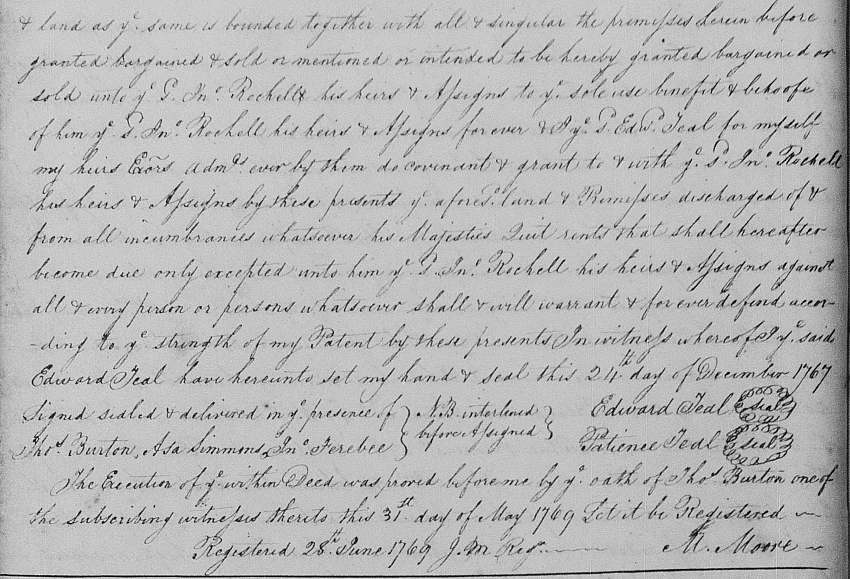 & land as ye. same is bounded together with all & singular the premisses herein before
granted bargained & sold or mentioned or intended to be hereby granted bargained or
sold unto ye S. Jno. Rochell his heirs & Assigns to ye. sole use benefit & behoofe
of him ye. Sd. Jno. Rochell his heirs & Assigns for ever & I ye. Sd. Edwd. Teal for myself
my heirs Exors admrs ever by them do covenant & grant to & with ye. Sd. Jno. Rochell
his heirs & Assigns by these presents ye. aforesd. land & Premisses discharged of &
from all incumbrances whatsoever his Majesties Quit rents that shall hereafter
become due only excepted unto him ye Sd Jno. Rochell his heirs & Assigns against
all & every person or persons whatsoever shall & will warrant & for ever defend accor-
-ding to ye. strength of my Patent by these presents In witness whereof I ye. said
Edward Teal have hereunto set my hand & seal this 24th day of December 1767
Signed sealed & delivered in ye. presence of } N.B. interlined } Edward Teal Seal
Thos. Burton, Asa Simmons, Jno. Ferebee } before Assigned } Patience Teal Seal
The Execution of ye. within Deed was proved before me by ye. oath of Thos. Burton one of
the subscribing witnesses thereto this 31st day of May 1769 Let it be Registered
Registered 28th. June 1769 J. M Regr. M. Moore